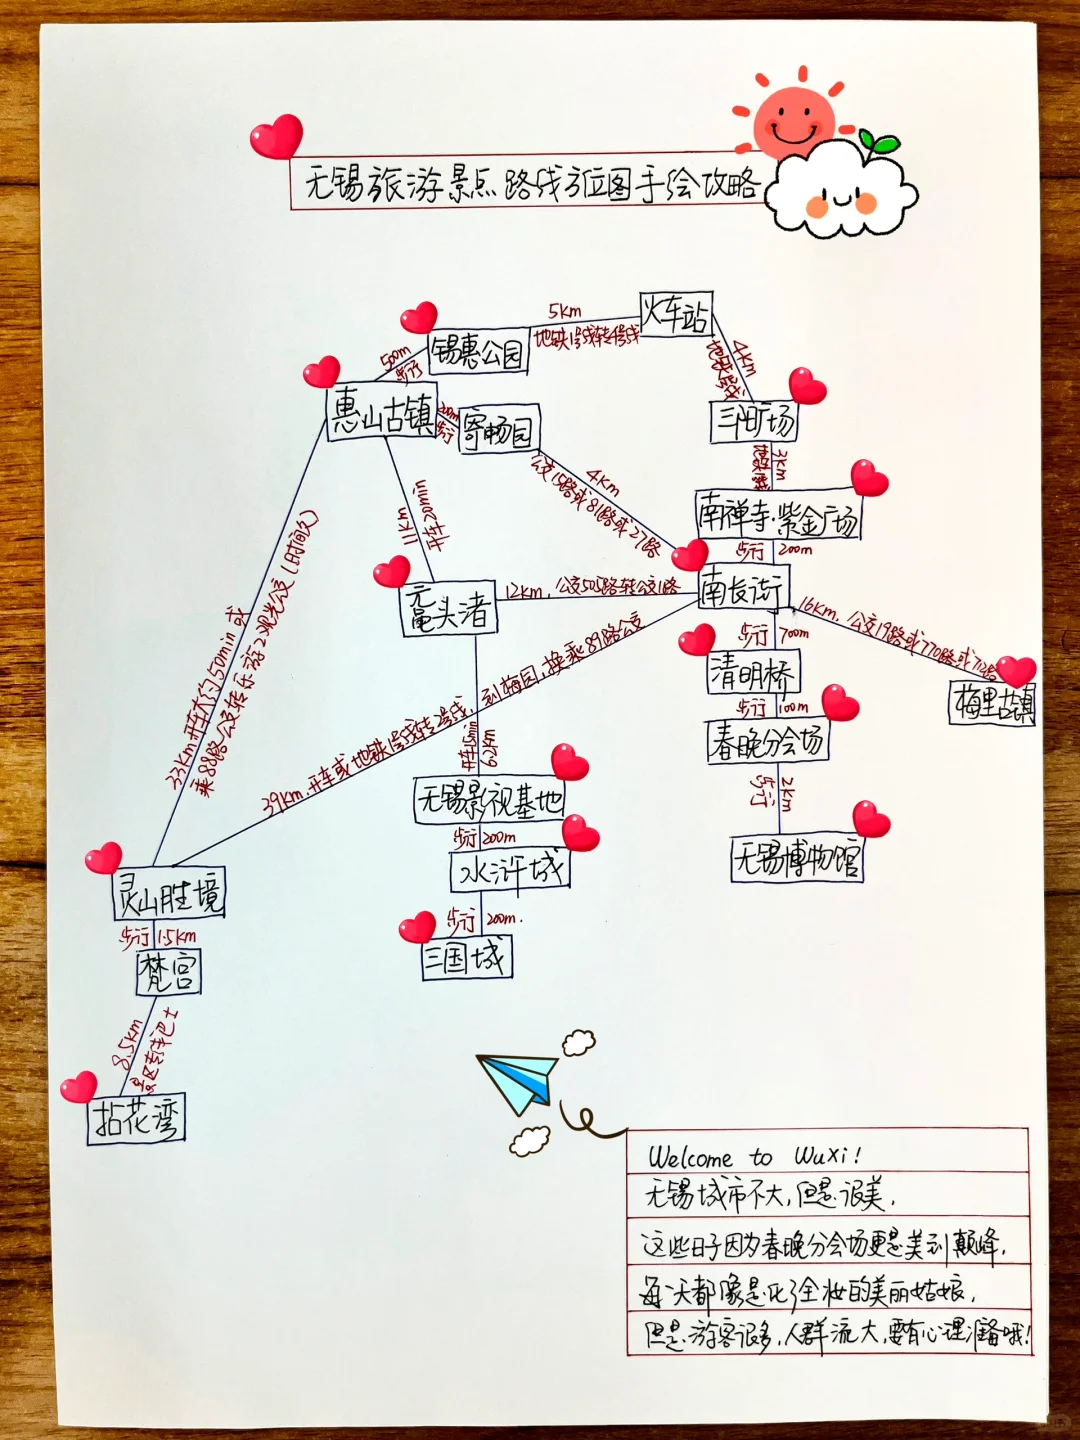 无锡旅游景点路线方位图手绘攻略
火车站
5km
地铁1号线转4号线
锡惠公园
500m
步行
4km
地铁1号线
惠山古镇
200m
步行
寄畅园
三阳广场
2km
4km
公交15路或81路或27路
南禅寺·紫金广场
步行 200m
11km
开车20min
南长街
鼋头渚
12km,公交505路转公交1路
16km,公交19路或770路或712路
梅里古镇
步行 700m
清明桥
步行 100m
春晚分会场
33km开车大约50min或
乘88路公交转乐游2观光公交(时间久)
39km,开车或地铁1号线转2号线,到梅园,换乘89路公交
开车15min
6.2km
无锡影视基地
2km
步行
无锡博物馆
步行 200m
水浒城
步行 200m.
三国城
灵山胜境
步行 1.5km
梵宫
8.5km
景区专车巴士
拈花湾
Welcome to Wuxi!
无锡城市不大,但是很美,
这些日子因为春晚分会场更是美到巅峰,
每天都像是化了全妆的美丽姑娘,
但是游客很多,人群流大,要有心理准备哦!